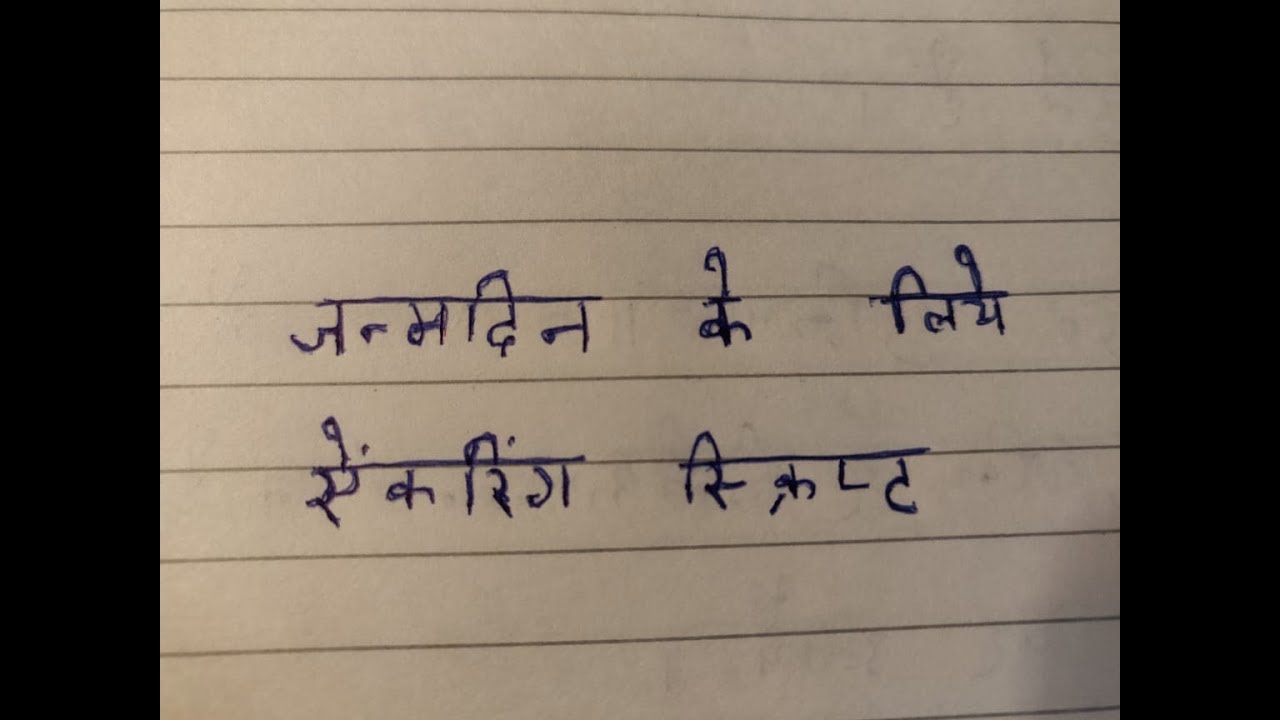 जन्मदिन के लिये
एेंकरिंग स्क्रिप्ट